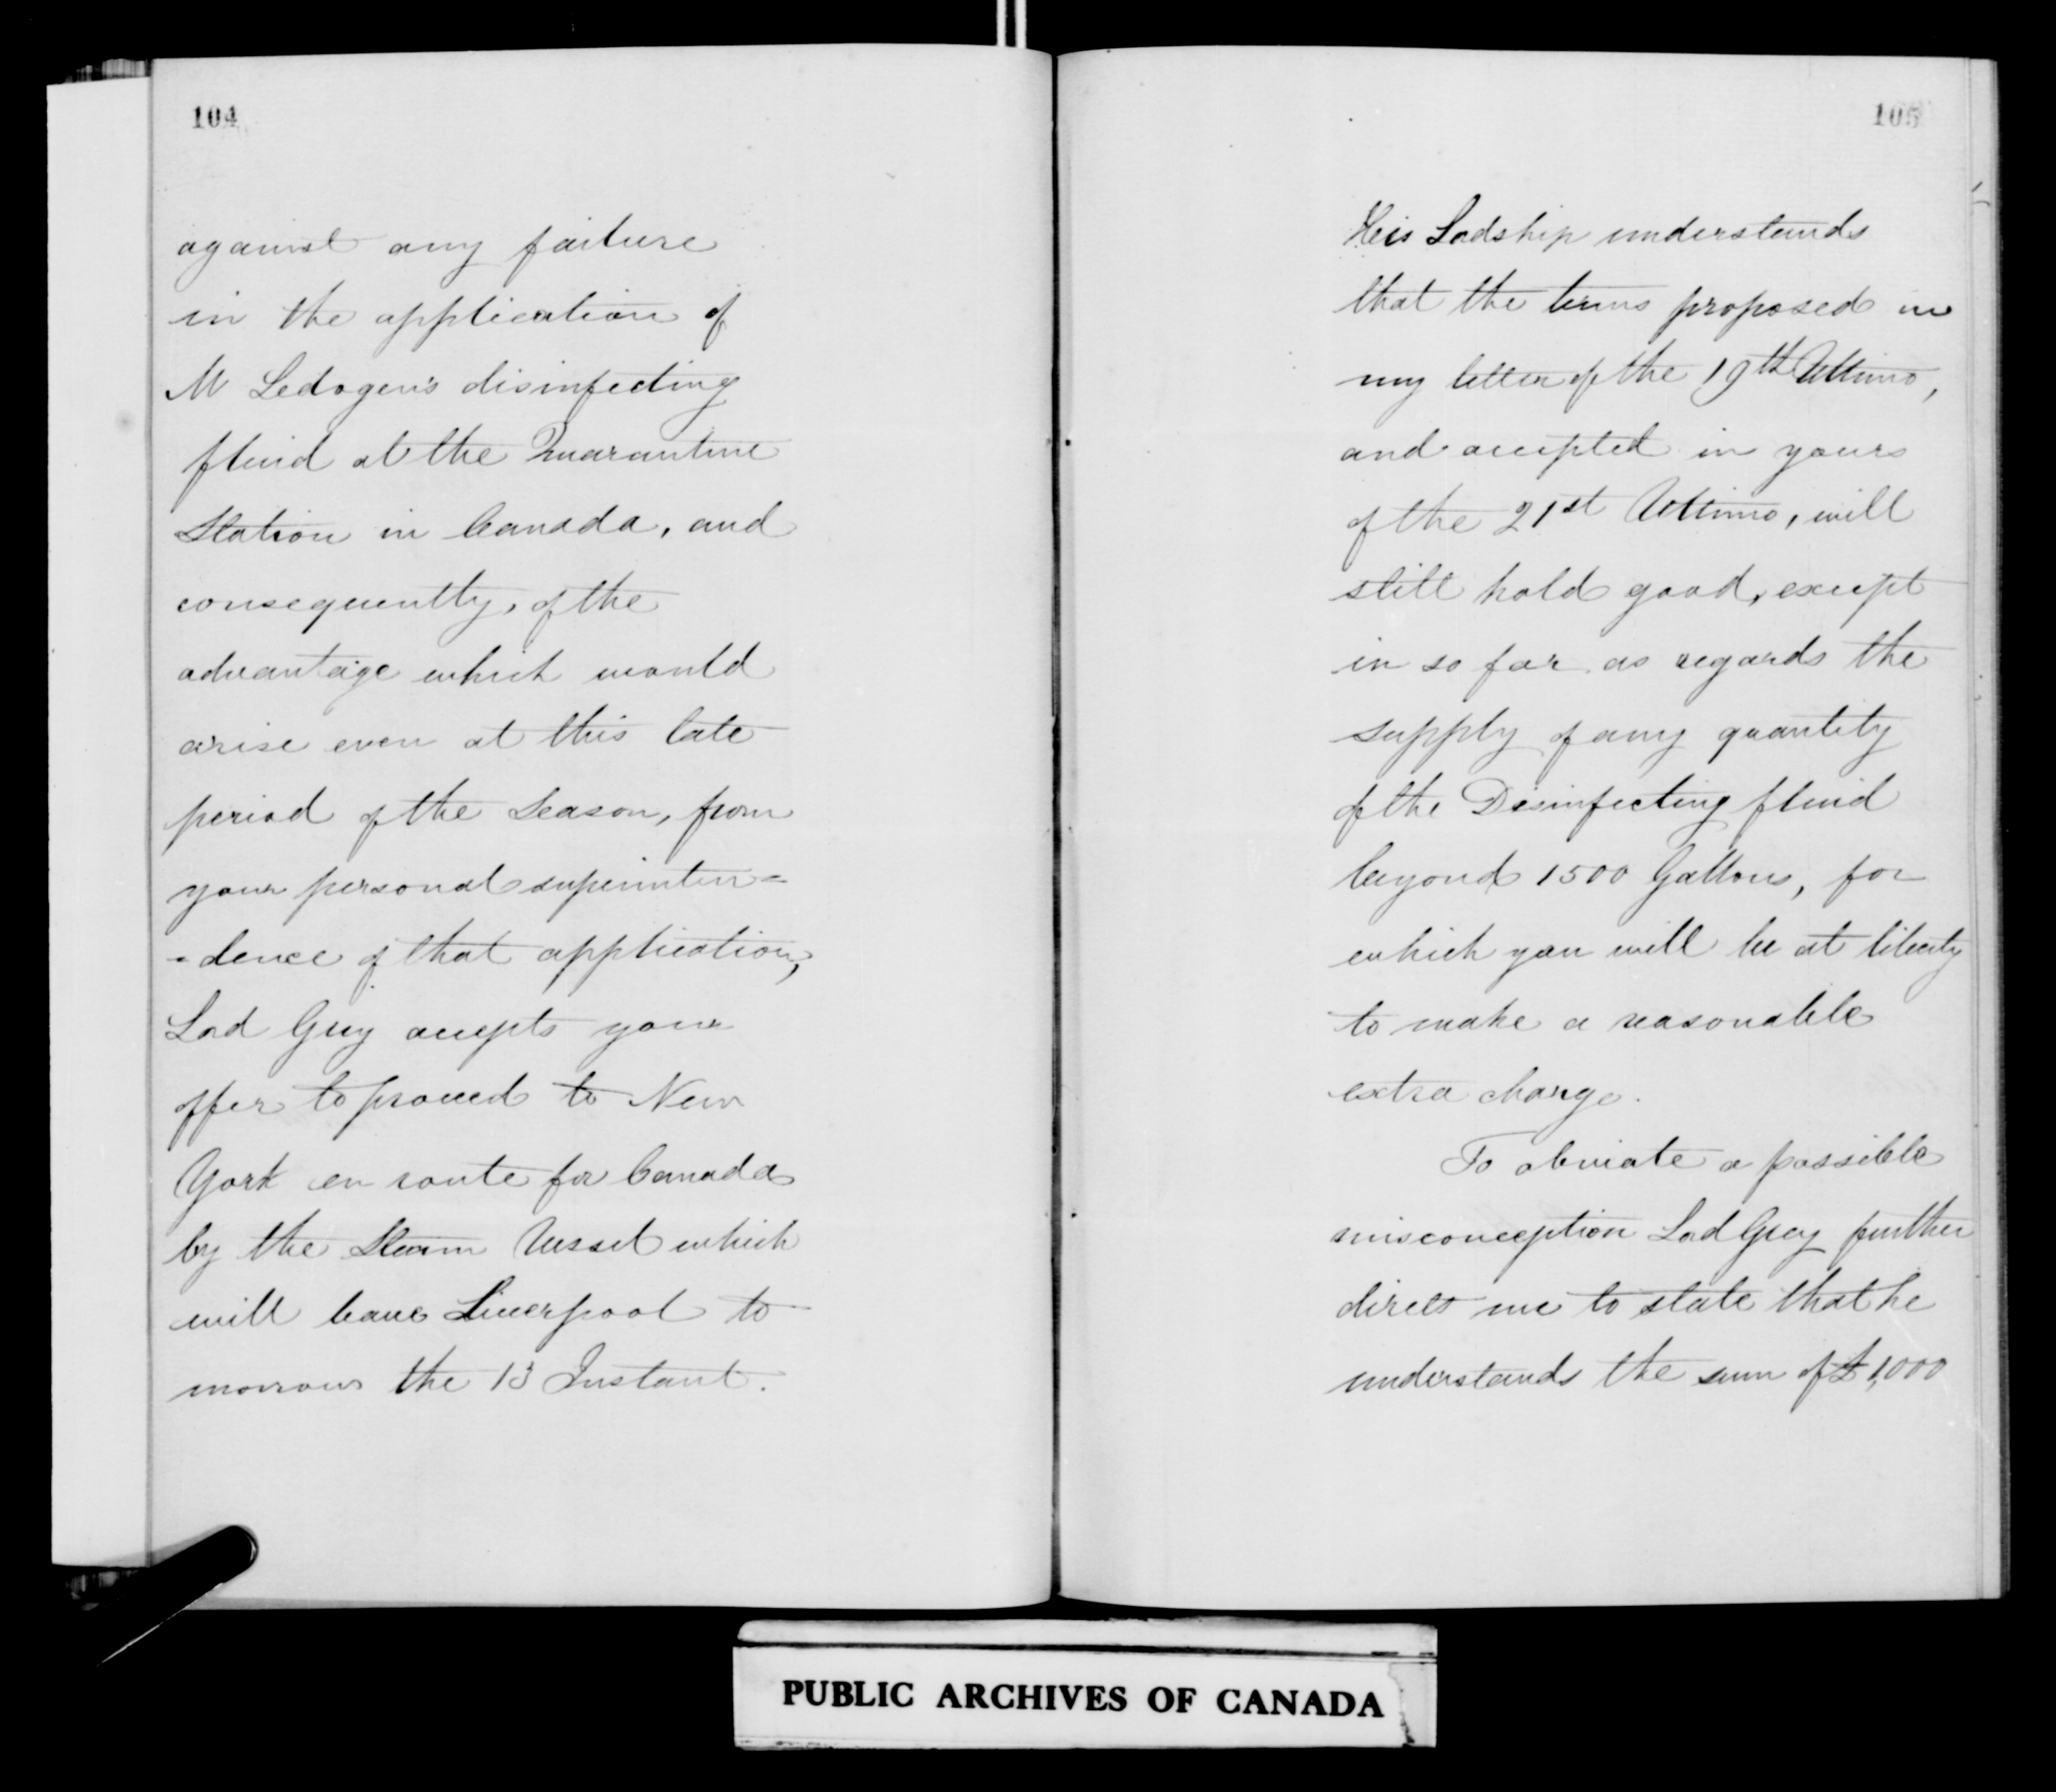 104
against any failure
in the application of
M Ledogen's disinfecting
fluid at the Quarantine
Station in Canada, and
consequently, of the
advantage which would
arise even at this late
period of the Season, from
your personal superinten=
=dence of that application,
Lord Grey accepts your
offer to proceed to New
York en route for Canada
by the Steam Vessel which
will leave Liverpool to
morrow the 13 Instant.
105
His Lordship understands
that the terms proposed in
my letter of the 19th Ultimo,
and accepted in yours
of the 21st Ultimo, will
still hold good, except
in so far as regards the
supply of any quantity
of the Disinfecting fluid
beyond 1500 Gallons, for
which you will be at liberty
to make a reasonable
extra charge.
To obviate a possible
misconception Lord Grey further
directs me to state that he
understands the sum of £1,000
PUBLIC ARCHIVES OF CANADA